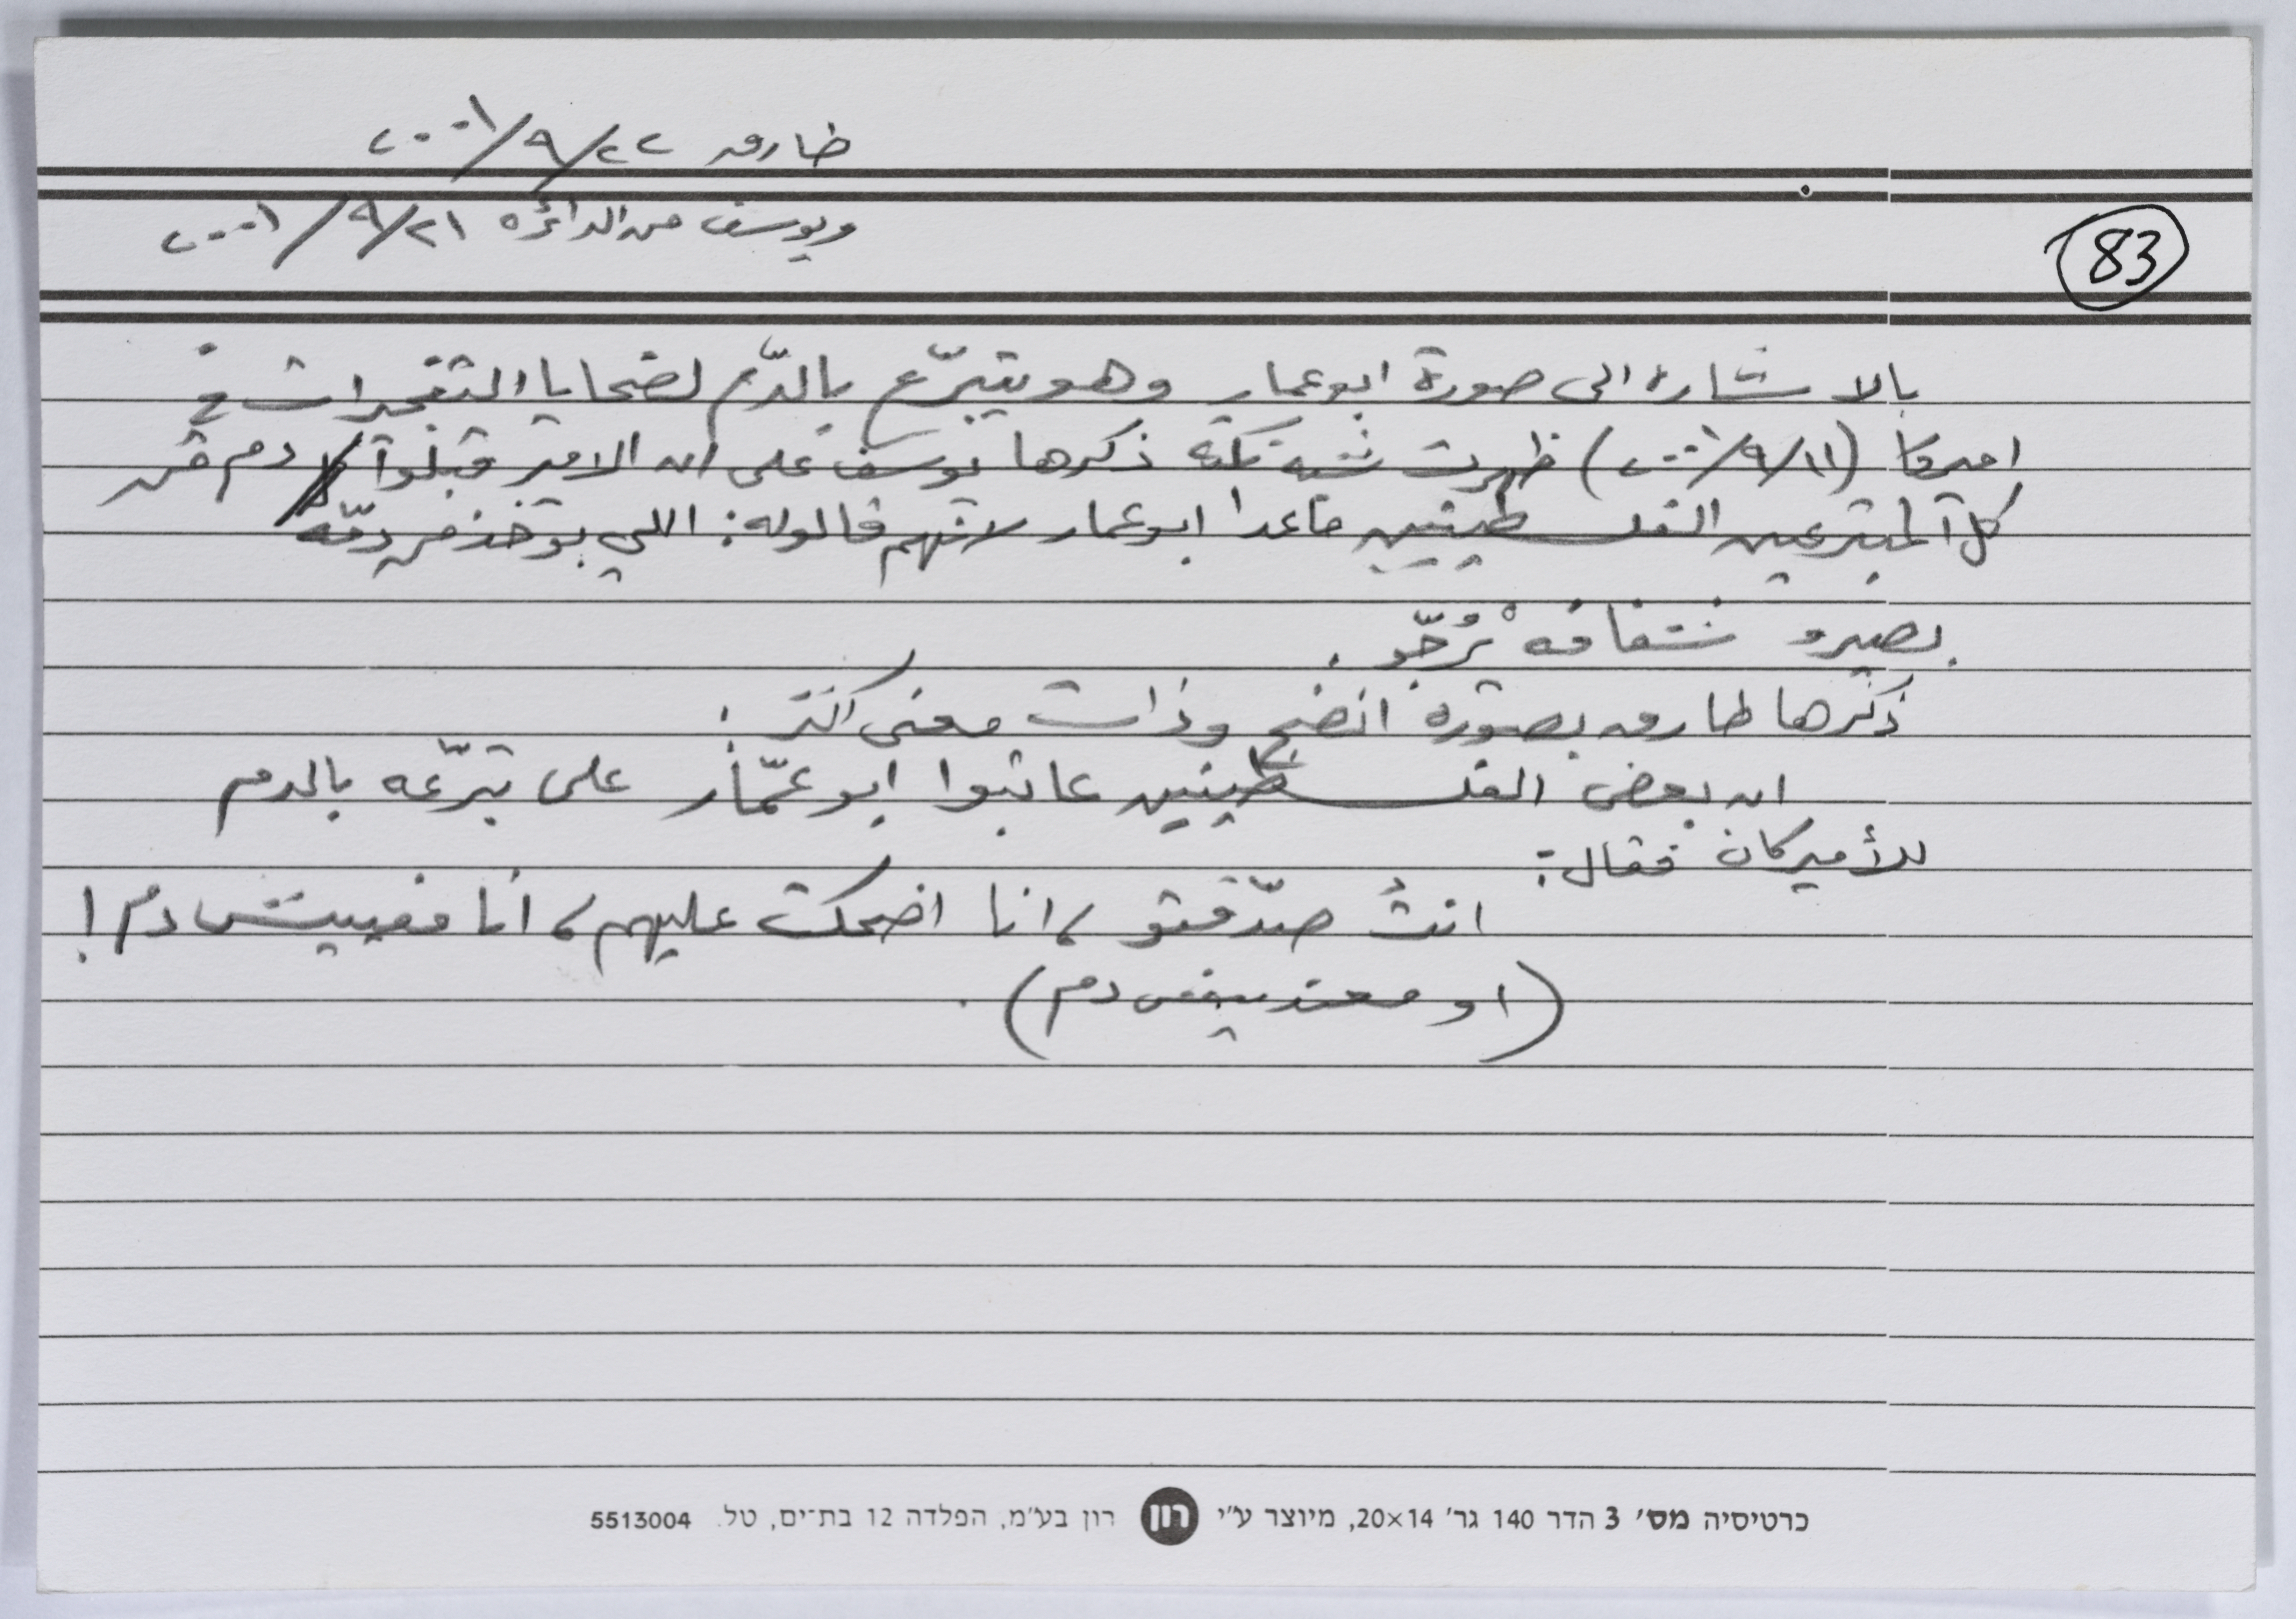 طارق ٢٢/٩/٢٠٠١
ويوسف من الدائرة ٢١/٩/٢٠٠١
83
بالاشارة الى صورة ابو عمار وهو يتبرّع بالدّم لضحايا التفجيرات في
اميركا (١١/٩/٢٠٠١) ظهرت شبه نكتة ذكرها يوسف على ان الامير قبلوا دم من
كل المتبرعين الفلسطينيين ما عدا ابو عمار لانهم قالوله: اللي بوخذ من دمّه
بصيرو شفافه يْرُجّو.
ذكرها طارق بصورة انضج وذات معنى اكثر:
ان بعض الفلسطينيين عاتبوا ابو عمّار على تبرّعه بالدم
للأميركان فقال:
انتُ صدّقتو، انا اضحكت عليهم، أنا مفييش دم!
(او معنديش دم).
כרטיסיה מס׳ 3 הדר 140 גר׳ 20×14, מיוצר ע״י רון רון בע״מ, הפלדה 12 בת־ים, טל. 5513004